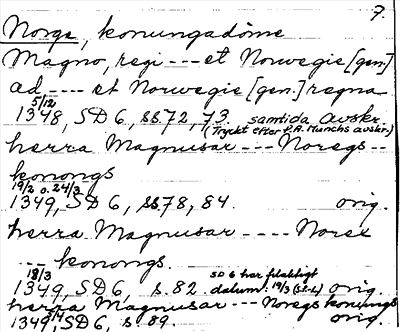 7.
Norge, konungadöme
Magno, regi --- et Norwegie [gen.]
ad --- et Norwegie [gen.] regna
5/12
1348, SD 6, ss. 72, 73. samtida avskr.
(Tryckt efter P.A. Munchs avskr.)
herra Magnusar --- Noregs --
konongs
19/2 o. 24/3
1349, SD 6, ss. 78, 84. orig.
herra Magnusar --- Norex
--- konongs.
18/3 SD 6 har felaktigt
1349, SD 6, s. 82. datum: 19/3 orig.
herra Magnusar --- Noregs konungs
1349, SD 6, s. 89. orig.